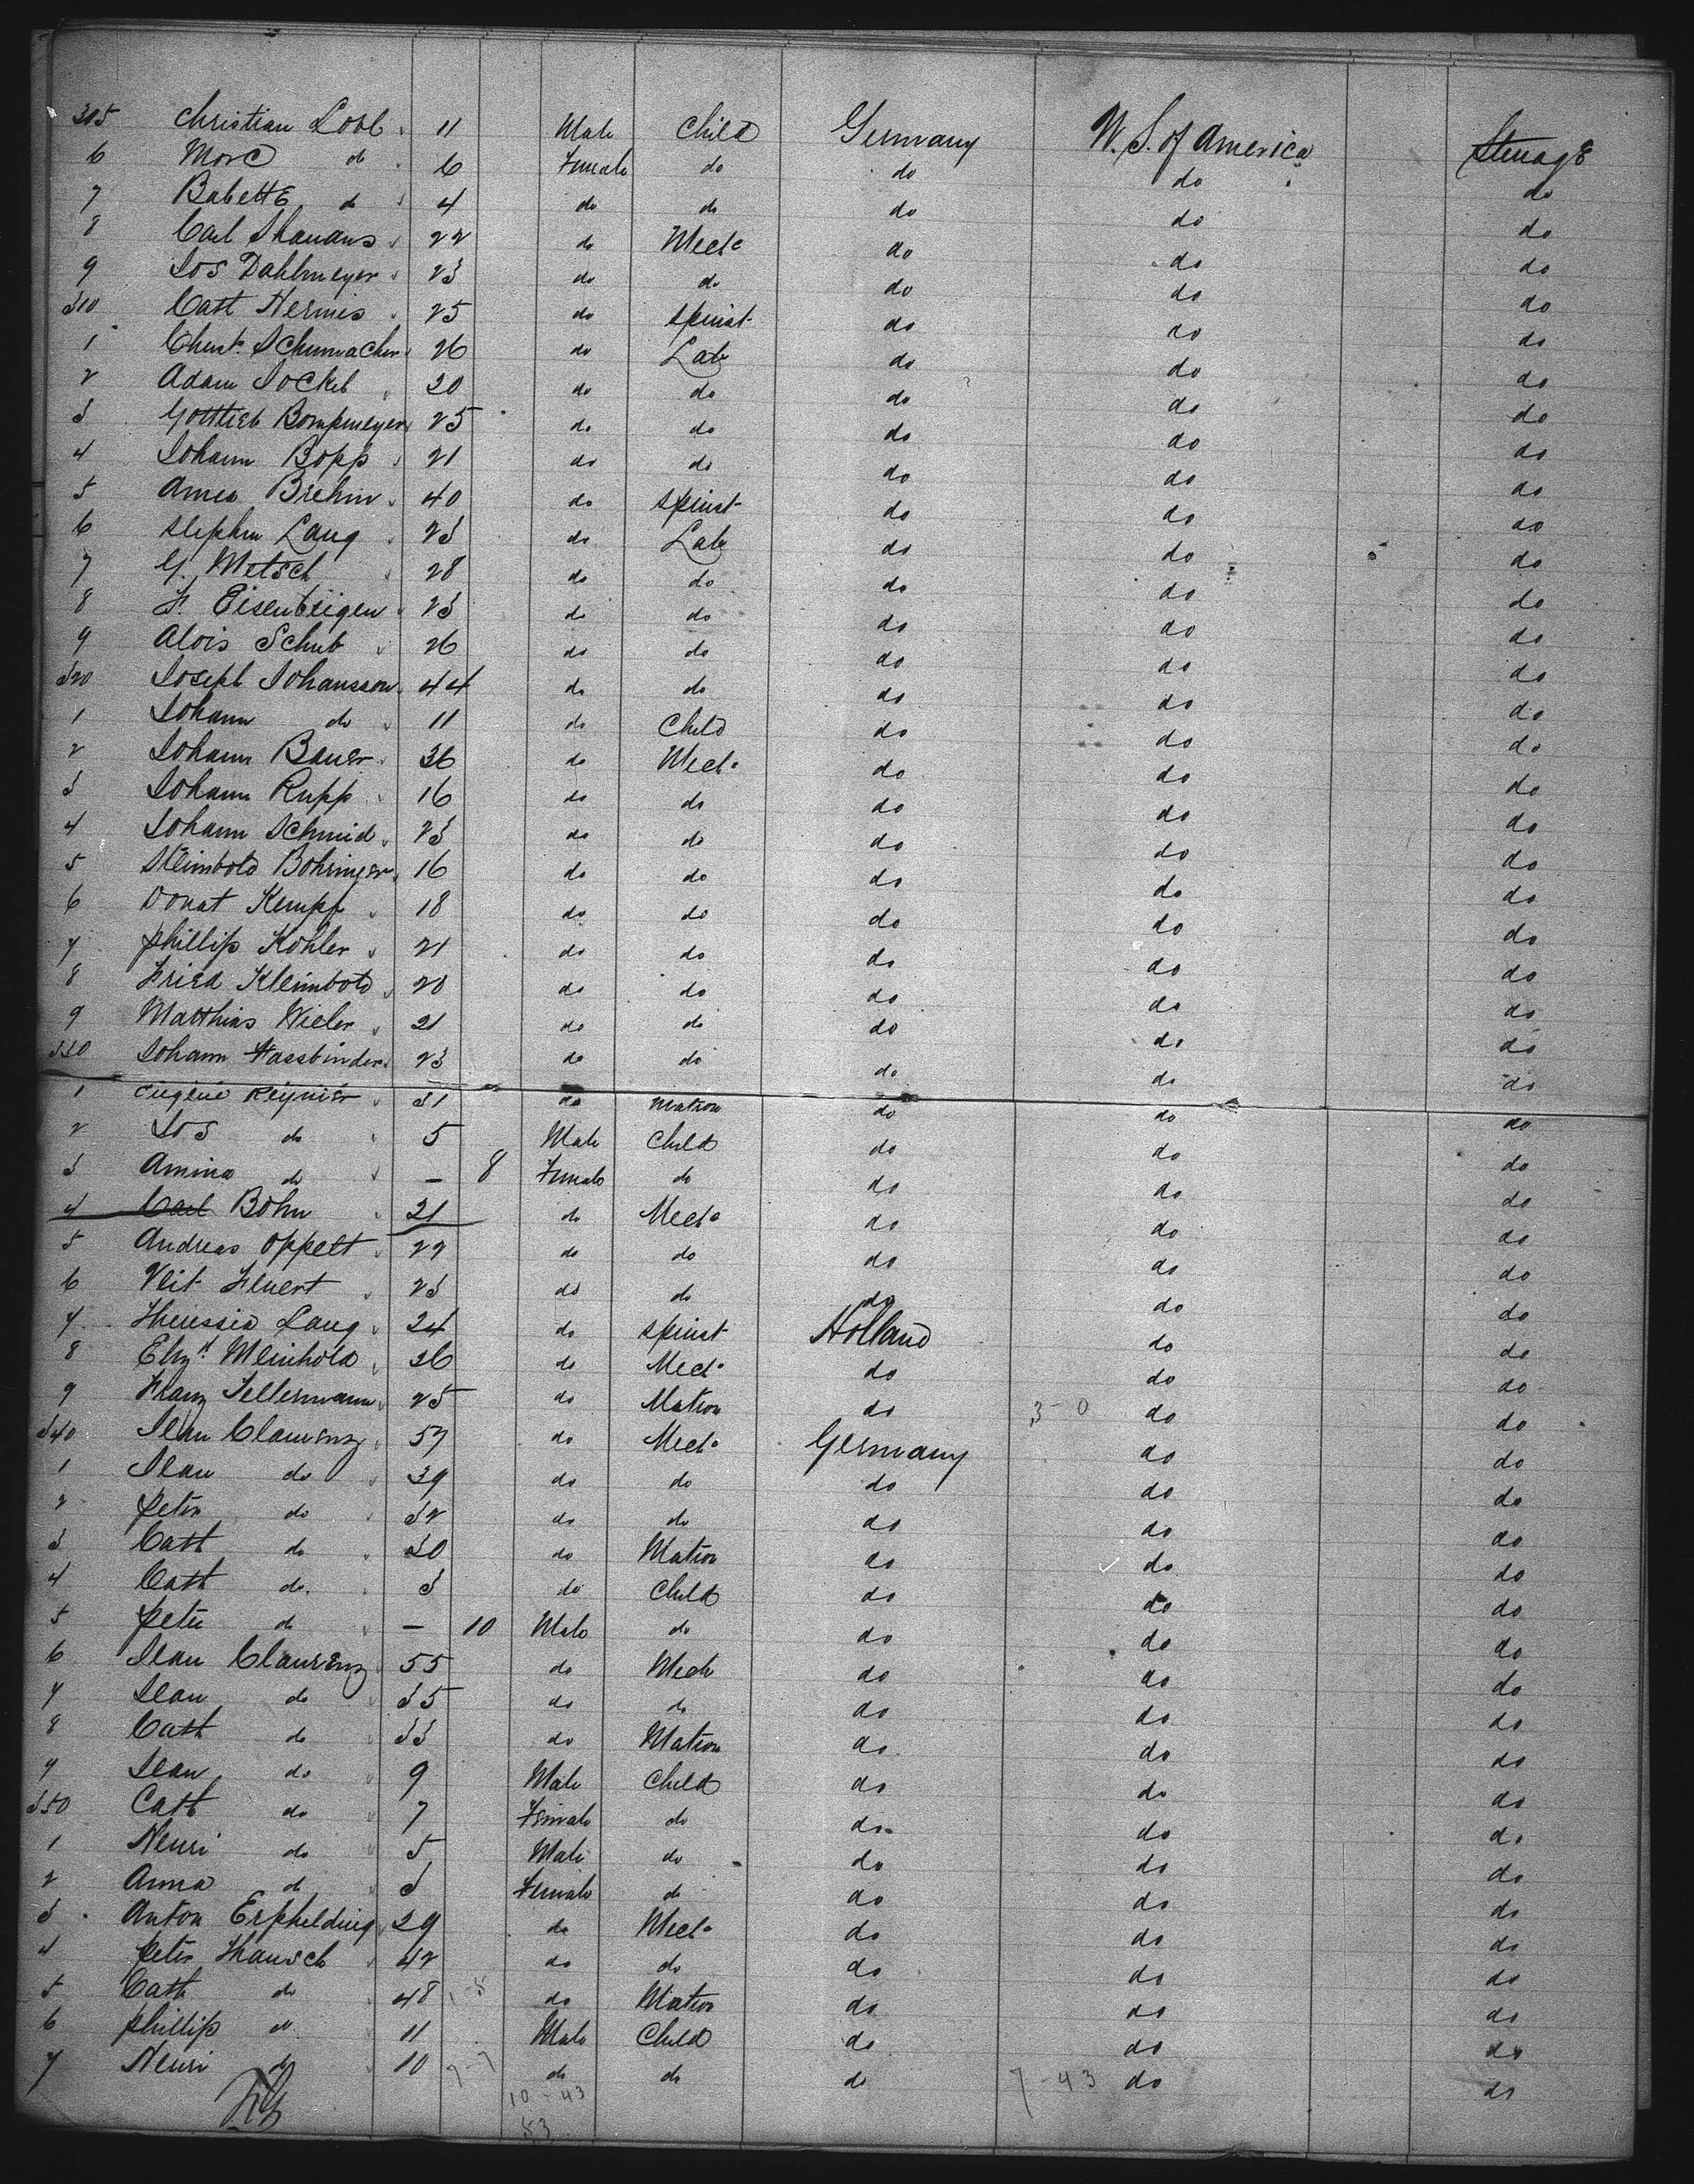 305 Christian Loob 11 Male Child Germany U.S. of America Steerage
6 do 6 Female do do do do
7 Babette do 4 do do do do do
8 Carl 22 do Mech do do do
9 Jos Dahlmeyer 23 do do do do do
310 Cath Hermis 25 do Spinst do do do
1 Christ Schumacher 26 do Lab do do do
2 Adam Jockel 20 do do do do do
3 Gottlieb Bompmeyer 25 do do do do do
4 Johann Bopp 21 do do do do do
5 Brehm 40 do Spinst do do do
6 Stephen Lang 23 do Lab do do do
7 G. Metsch 28 do do do do do
8 F. 23 do do do do do
9 Alois Schub 26 do do do do do
320 Joseph Johansson 44 do do do do do
1 Johann do 11 do Child do do do
2 Johann Bauer 36 do Mech do do do
3 Johann Rupp 16 do do do do do
4 Johann Schmid 23 do do do do do
5 Bohringer 16 do do do do do
6 Donat Kempf 18 do do do do do
7 Phillip Kohler 21 do do do do do
8 Fried Kleimbold 20 do do do do do
9 Matthias Wieler 21 do do do do do
330 Johann Hassbinder 23 do do do do do
1 Eugenie Reynier 31 do Matron do do do
2 Jos do 5 Male Child do do do
3 Amina do — 8 Female do do do do
4 Carl Bohn 21 do Mech do do do
5 Andreas Oppelt 22 do do do do do
6 Veit 23 do do do do do
7 Lang 24 do Spinst Holland do do
8 Elizth Meinhold 26 do Mech do do do
9 Franz Sellermann 25 do Matron do 3-0 do do
340 Jean Claurenz 57 do Mech Germany do do
1 Jean do 39 do do do do do
2 Peter do 32 do do do do do
3 Cath do 30 do Matron do do do
4 Cath do 3 do Child do do do
5 Peter do — 10 Male do do do do
6 Jean Claurenz 55 do Mech do do do
7 Jean do 35 do do do do do
8 Cath do 33 do Matron do do do
9 Jean do 9 Male Child do do do
350 Cath do 7 Female do do do do
1 Henri do 5 Male do do do do
2 Anna do 3 Female do do do do
3 Anton Erphelding 29 do Mech do do do
4 Peter Thausch 42 do do do do do
5 Cath do 48 do Matron do do do
6 Phillip do 11 Male Child do do do
7 Henri do 10 do do do 7-43 do do
10-43
53